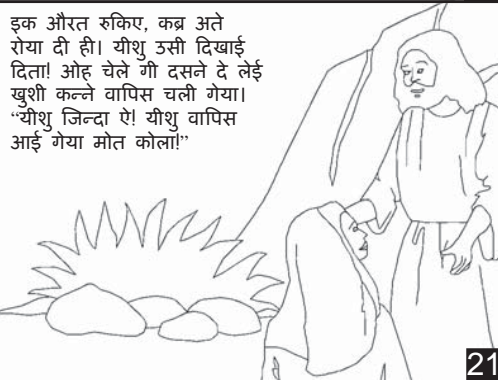 इक औरत रुकिए, कब्र अते
रोया दी ही। यीशु उसी दिखाई
दिता! ओह चेले गी दसने दे लेई
खुशी कन्ने वापिस चली गेया।
“यीशु जिन्दा ऐ! यीशु वापिस
आई गेया मोत कोला!”
21